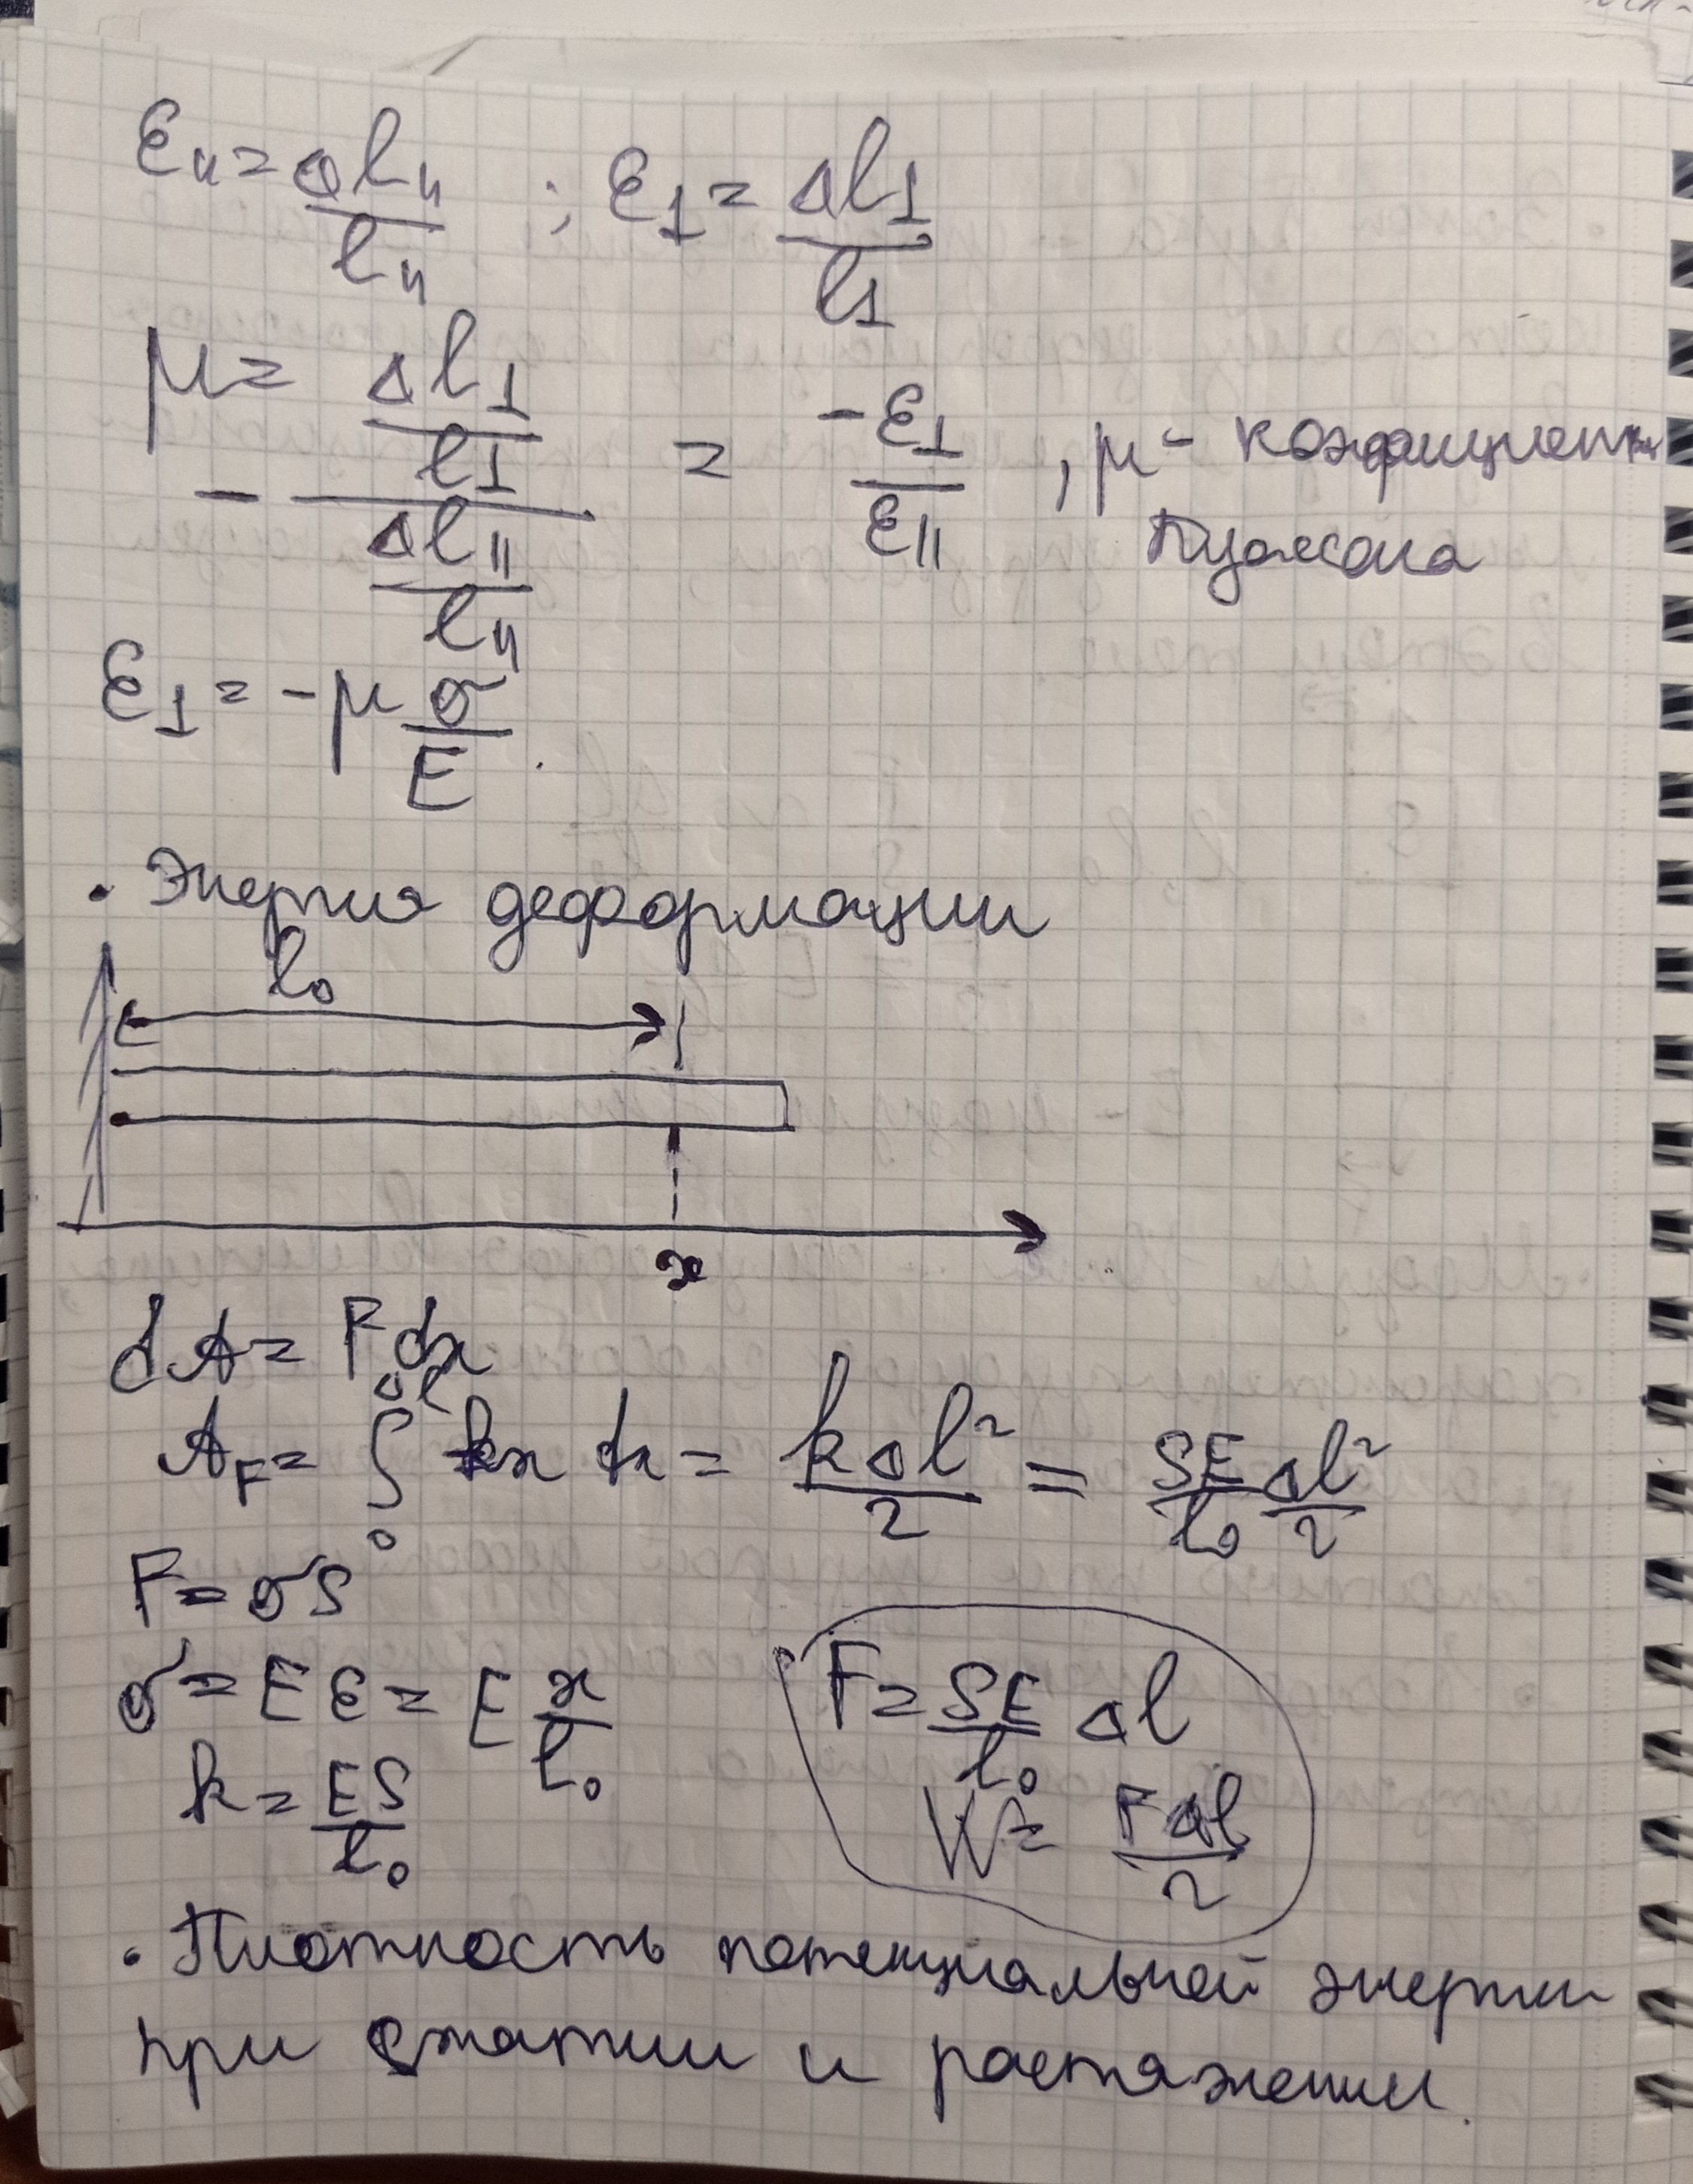 ε₁₁ = Δl₁₁/l₁₁ ; ε⊥ = Δl⊥/l⊥
μ = - (Δl⊥/l⊥)/(Δl||/l₁₁) = -ε⊥/ε|| , μ - коэффициент
Пуассона
ε⊥ = -μ σ/E .
• Энергия деформации
l₀
x
dA = Fdx
A_F = ∫₀^Δl kx dx = kΔl²/2 = SE/l₀ Δl²/2
F = σS
σ = Eε = E x/l₀
F = SE/l₀ Δl
k = ES/l₀
W = FΔl/2
• Плотность потенциальной энергии
при сжатии и растяжении.